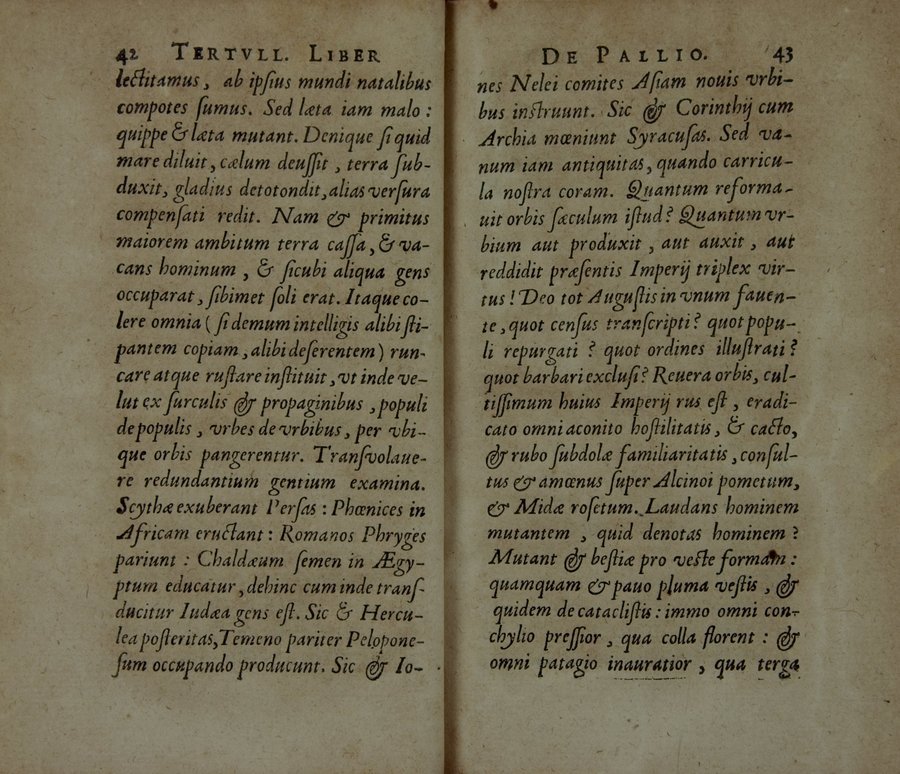 42 TERTVLL. LIBER
lectitamus, ab ipsius mundi natalibus
compotes sumus. Sed læta iam malo:
quippe & læta mutant. Denique si quid
mare diluit, cælum deussit, terra sub-
duxit, gladius detotondit, alias versura
compensati redit. Nam & primitus
maiorem ambitum terra cassa, & va-
cans hominum, & sicubi aliqua gens
occuparat, sibimet soli erat. Itaque co-
lere omnia (si demum intelligis alibi sti-
pantem copiam, alibi deserentem) run-
care atque rustare instituit, vt inde ve-
lut ex surculis & propaginibus, populi
de populis, vrbes de vrbibus, per vbi-
que orbis pangerentur. Transvolaue-
re redundantium gentium examina.
Scythæ exuberant Persas: Phœnices in
Africam eructant: Romanos Phryges
pariunt: Chaldæum semen in Ægy-
ptum educatur, dehinc cum inde trans-
ducitur Iudæa gens est. Sic & Hercu-
lea posteritas, Temeno pariter Pelopone-
sum occupando producunt. Sic & Io-
DE PALLIO. 43
nes Nelei comites Asiam nouis vrbi-
bus instruunt. Sic & Corinthij cum
Archia mœniunt Syracusas. Sed va-
num iam antiquitas, quando carricu-
la nostra coram. Quantum reforma-
uit orbis sæculum istud? Quantum vr-
bium aut produxit, aut auxit, aut
reddidit præsentis Imperij triplex vir-
tus! Deo tot Augustis in vnum fauen-
te, quot census transcripti? quot popu-
li repurgati? quot ordines illustrati?
quot barbari exclusi? Reuera orbis, cul-
tissimum huius Imperij rus est, eradi-
cato omni aconito hostilitatis, & cacto,
& rubo subdolæ familiaritatis, consul-
tus & amœnus super Alcinoi pometum,
& Midæ rosetum. Laudans hominem
mutantem, quid denotas hominem?
Mutant & bestiæ pro veste formam:
quamquam & pauo pluma vestis, &
quidem de cataclistis: immo omni con-
chylio pressior, qua colla florent: &
omni patagio inauratior, qua terga